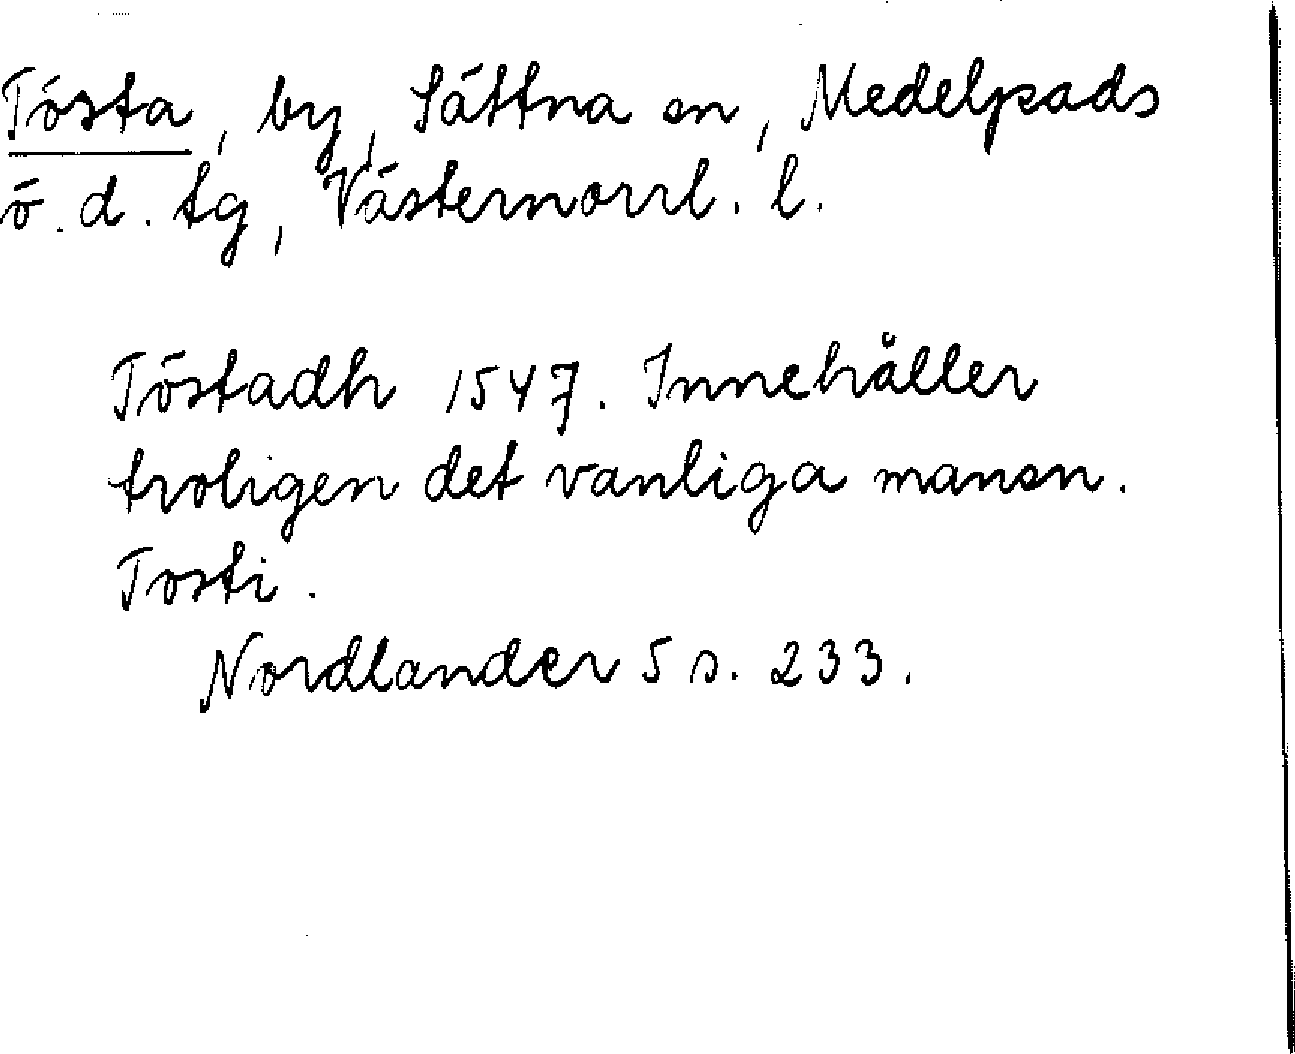 Tösta, by, Sättna sn, Medelpads
ö. d. tg, Västernorrl. l.
Töstadh 1547. Innehåller
troligen det vanliga mansn.
Tosti.
Nordlander 5 s. 233.